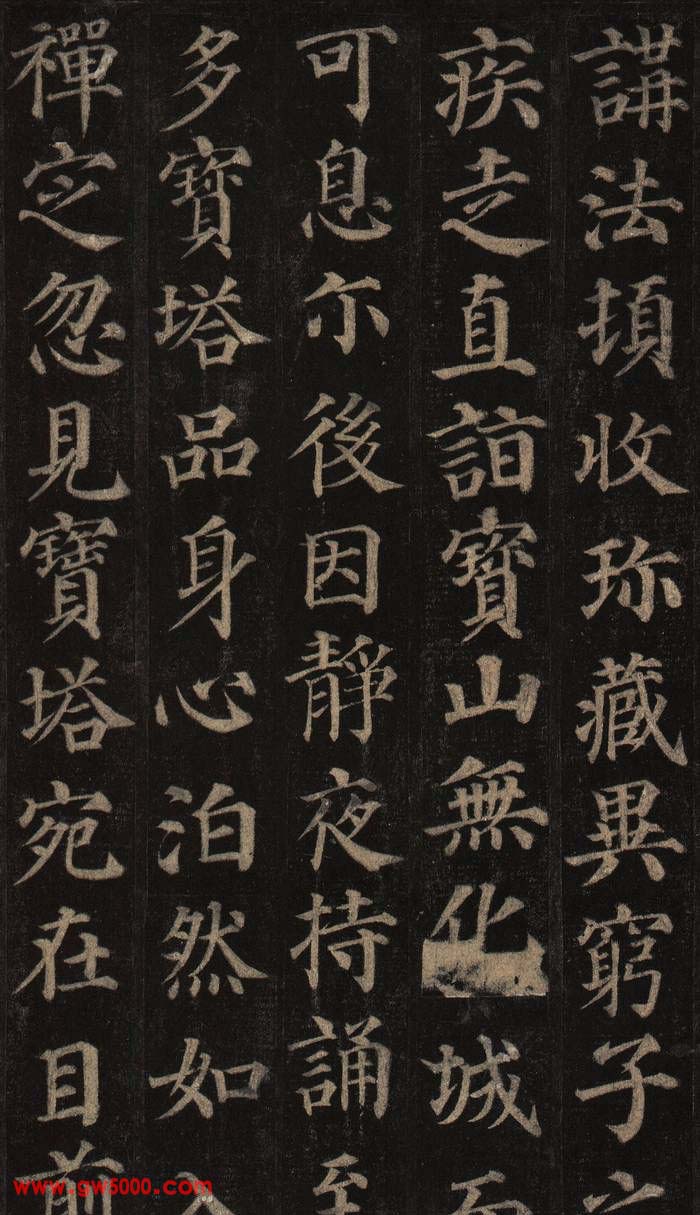 講法頓收珎藏異窮子
疾走直詣寶山無化城而
可息尓後因靜夜持誦至
多寶塔品身心泊然如
禪定忽見寶塔宛在目前
www.gw5000.com